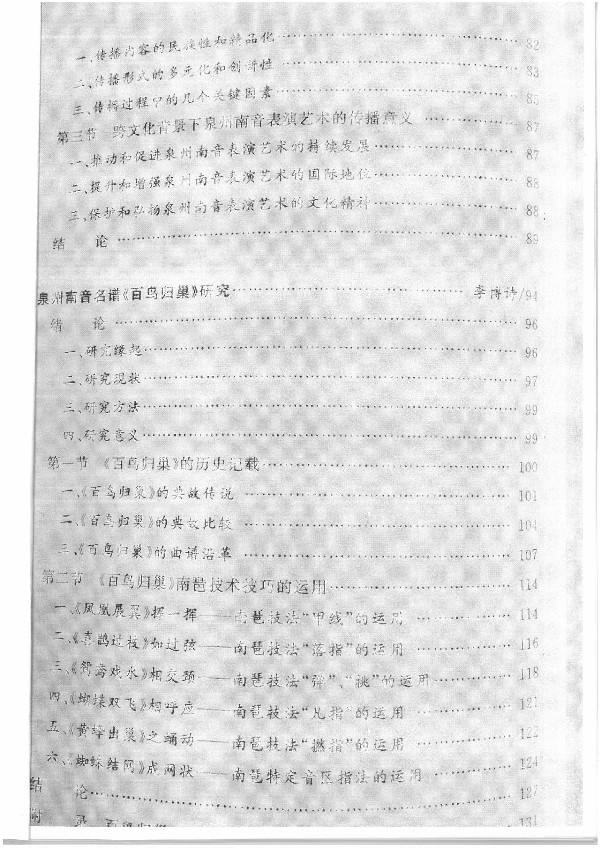 一、传播内容的民族性和精品化 …… 82
二、传播形式的多元化和创新性 …… 83
三、传播过程中的几个关键因素 …… 85
第三节 跨文化背景下泉州南音表演艺术的传播意义 …… 87
一、推动和促进泉州南音表演艺术的持续发展 …… 87
二、提升和增强泉州南音表演艺术的国际地位 …… 88
三、保护和弘扬泉州南音表演艺术的文化精神 …… 88
结 论 …… 89
泉州南音名谱《百鸟归巢》研究 …… 李博诗/94
绪 论 …… 96
一、研究缘起 …… 96
二、研究现状 …… 97
三、研究方法 …… 99
四、研究意义 …… 99
第一节 《百鸟归巢》的历史记载 …… 100
一、《百鸟归巢》的典故传说 …… 101
二、《百鸟归巢》的典故比较 …… 104
三、《百鸟归巢》的曲谱沿革 …… 107
第二节 《百鸟归巢》南琶技术技巧的运用 …… 114
一、《凤凰展翼》挥一挥——南琶技法“甲线”的运用 …… 114
二、《喜鹊过枝》如过弦——南琶技法“落指”的运用 …… 116
三、《鸳鸯戏水》相交颈——南琶技法“弹”、“挑”的运用 …… 118
四、《蝴蝶双飞》相呼应——南琶技法“凡指”的运用 …… 121
五、《黄蜂出巢》之蛹动——南琶技法“撚指”的运用 …… 122
六、《蜘蛛结网》成网状——南琶特定音区指法的运用 …… 124
结 论 …… 127
附 录 百鸟归 …… 131